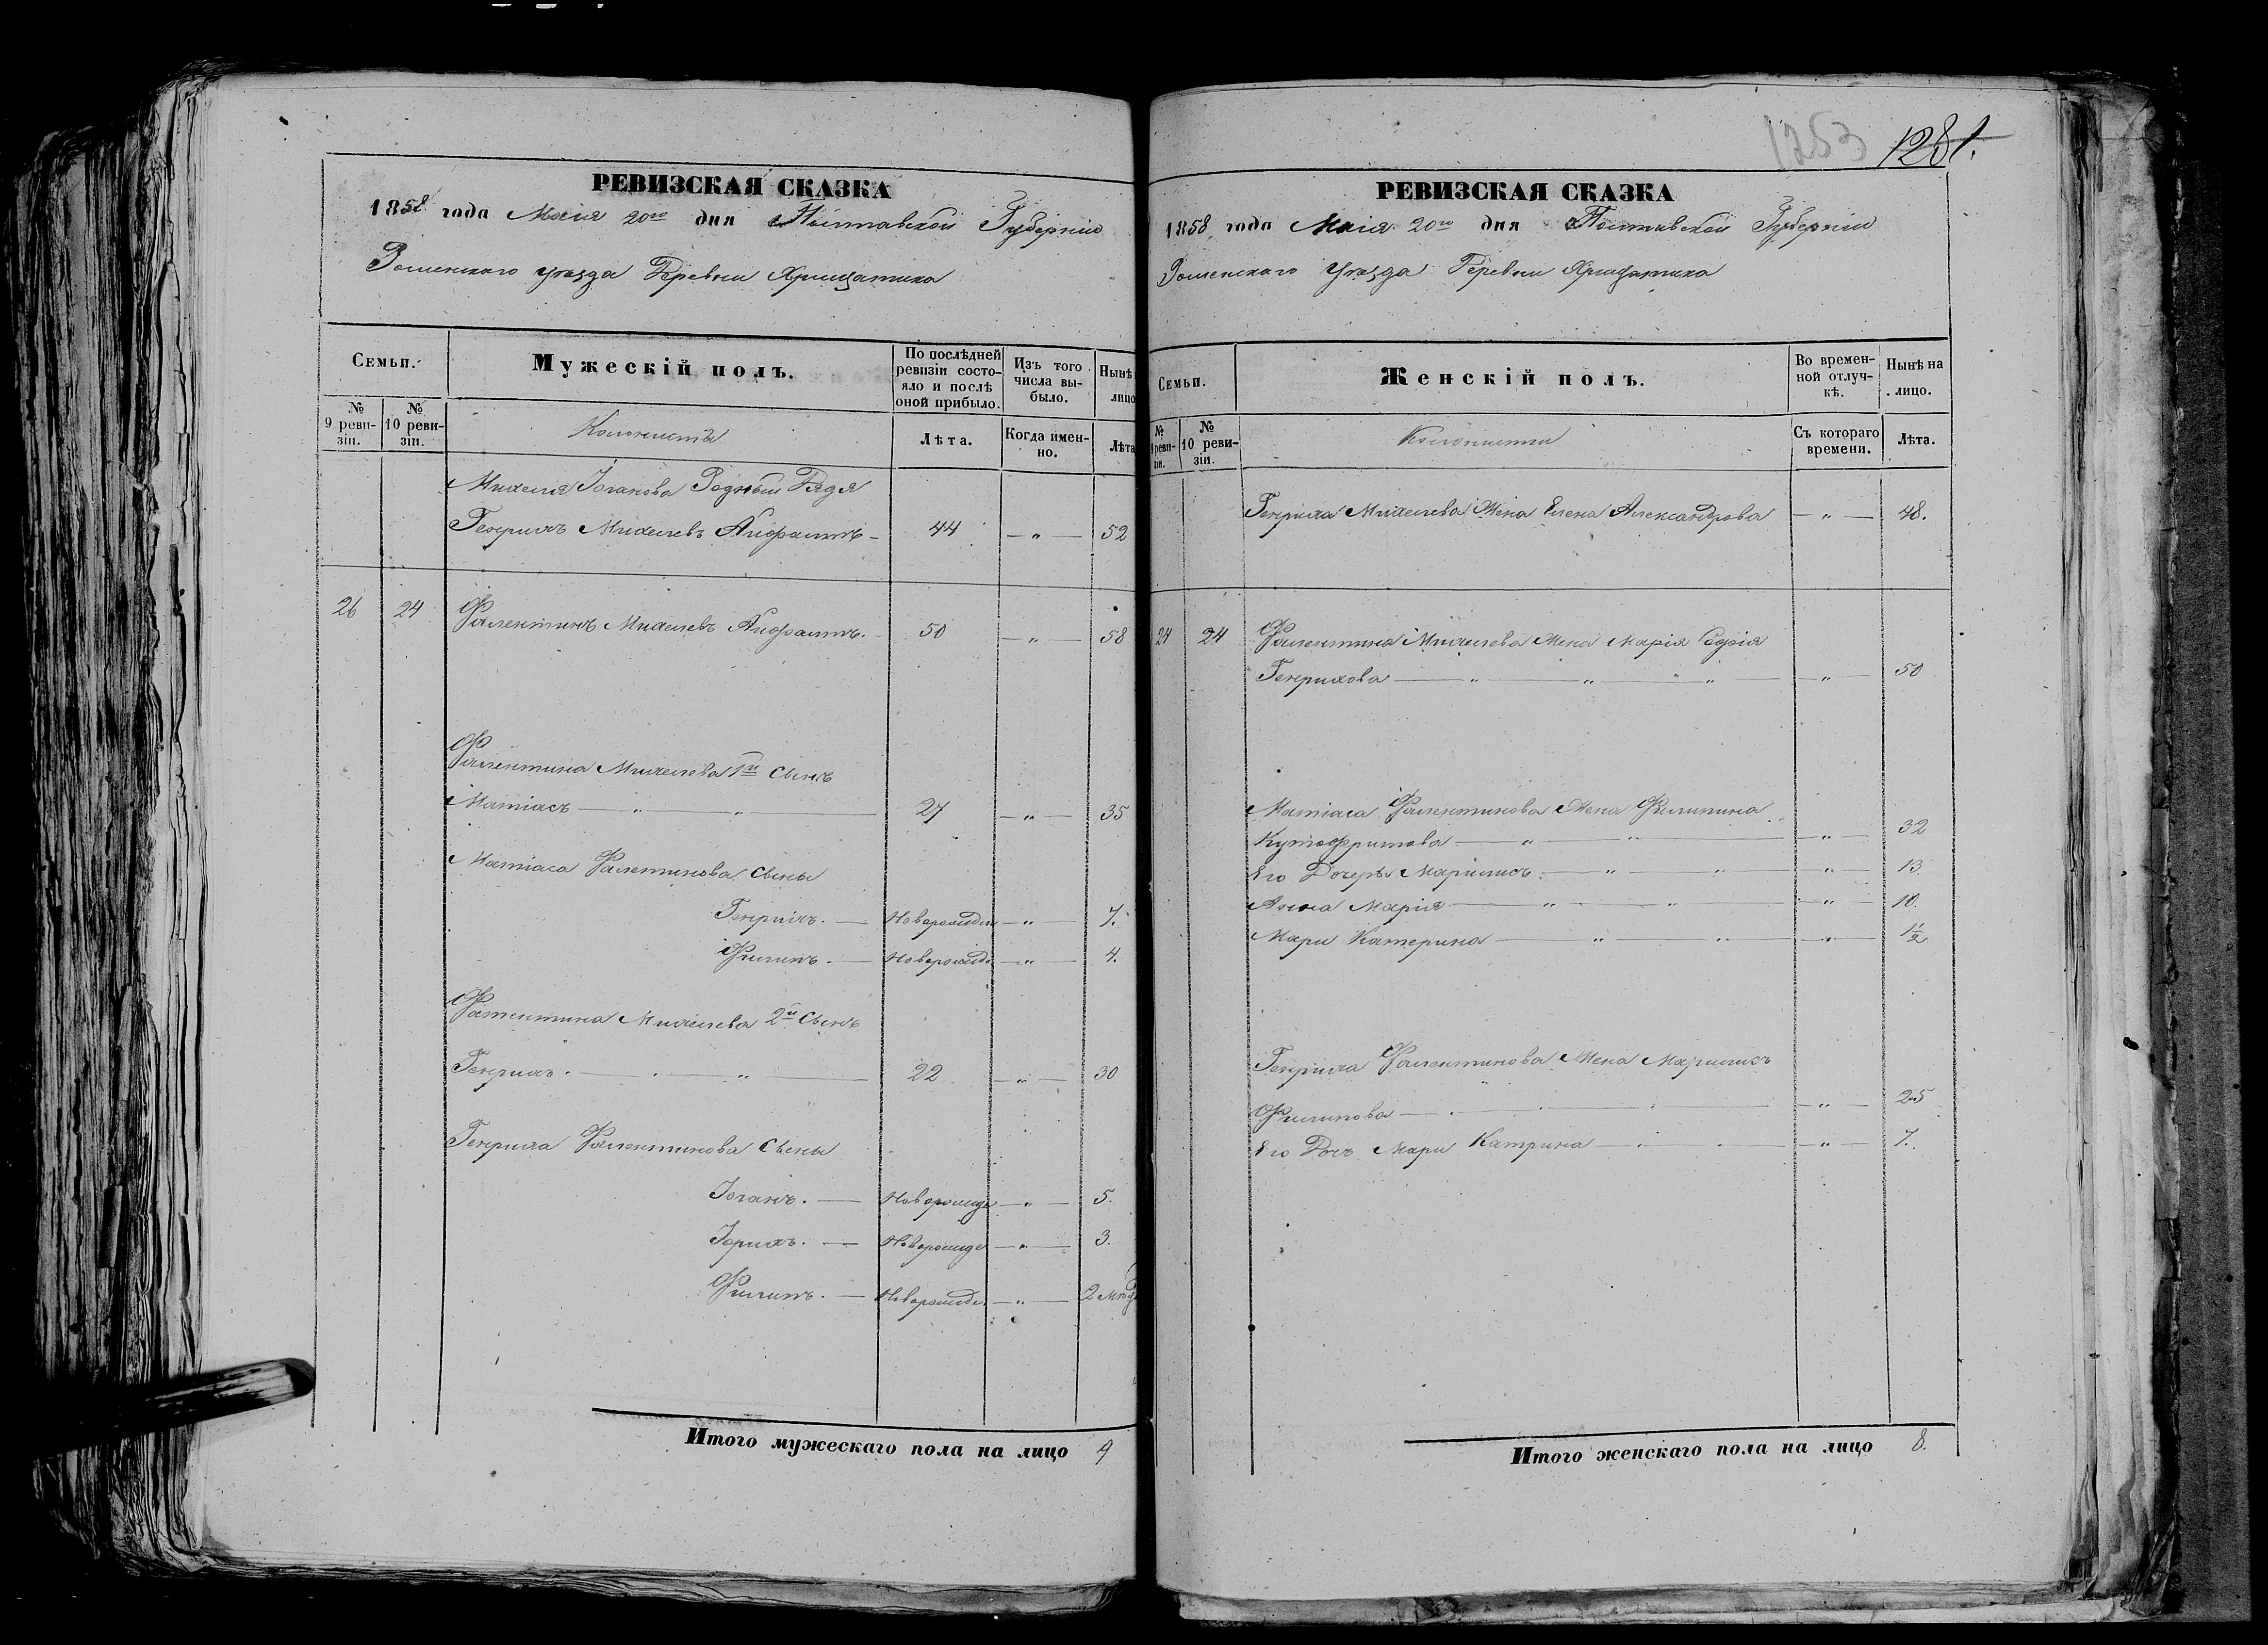 1253 1281.
РЕВИЗСКАЯ СКАЗКА
1858 года Маія 20го дня Полтавской Губерніи
Роменскаго уѣзда Деревни Хрещатика
Семьи.
Мужескій полъ.
По послѣдней ревизіи состояло и послѣ оной прибыло.
Изъ того числа выбыло.
Нынѣ лицо
№ 9 ревизіи.
№ 10 ревизіи.
Колонисты
Лѣта.
Когда именно.
Лѣта
Михеля Іоганова Родный Дядя
Генрихъ Михелевъ — 44 — „ — 52
26 24 Фалентинъ Михелевъ — 50 — „ — 58
Фалентина Михелева 1й Сынъ
Матіасъ — „ — „ — 27 — „ — 35
Матіаса Фалентинова Сыны
Генрихъ. — Новорожден — „ — 7.
Филипъ. — Новорожде — „ — 4.
Фалентина Михелева 2й Сынъ
Генрихъ. — „ — 22 — „ — 30
Генриха Фалентинова Сыны
Іоганъ. — Новорожде — „ — 5.
Новорожде — „ — 3.
Филипъ. — Новорожде — „ — 2
Итого мужескаго пола на лицо 9
РЕВИЗСКАЯ СКАЗКА
1858 года Маія 20го дня Полтавской Губерніи
Роменскаго уѣзда Деревни Хрещатика
Семьи.
Женскій полъ.
Во временной отлучкѣ.
Нынѣ на лицо.
№ ревизіи.
№ 10 ревизіи.
Колонистки
Съ котораго времени.
Лѣта.
Генриха Михелева Жена Елена Александрова — „ — 48.
24 24 Фалентина Михелева Жена Марія Софія
Генрихова — „ — „ — „ — „ — 50
Матіаса Фалентинова Жена Филипина
— „ — „ — „ — 32
Его Дочерь Марилисъ. — „ — „ — „ — 13.
Анна Марія — „ — „ — „ — 10.
Мари Катерина — „ — „ — „ — 1/2
Генриха Фалентинова Жена Марилисъ
Филипова — „ — 25
Его Дочь Мари Катрина — „ — 7.
Итого женскаго пола на лицо 8.